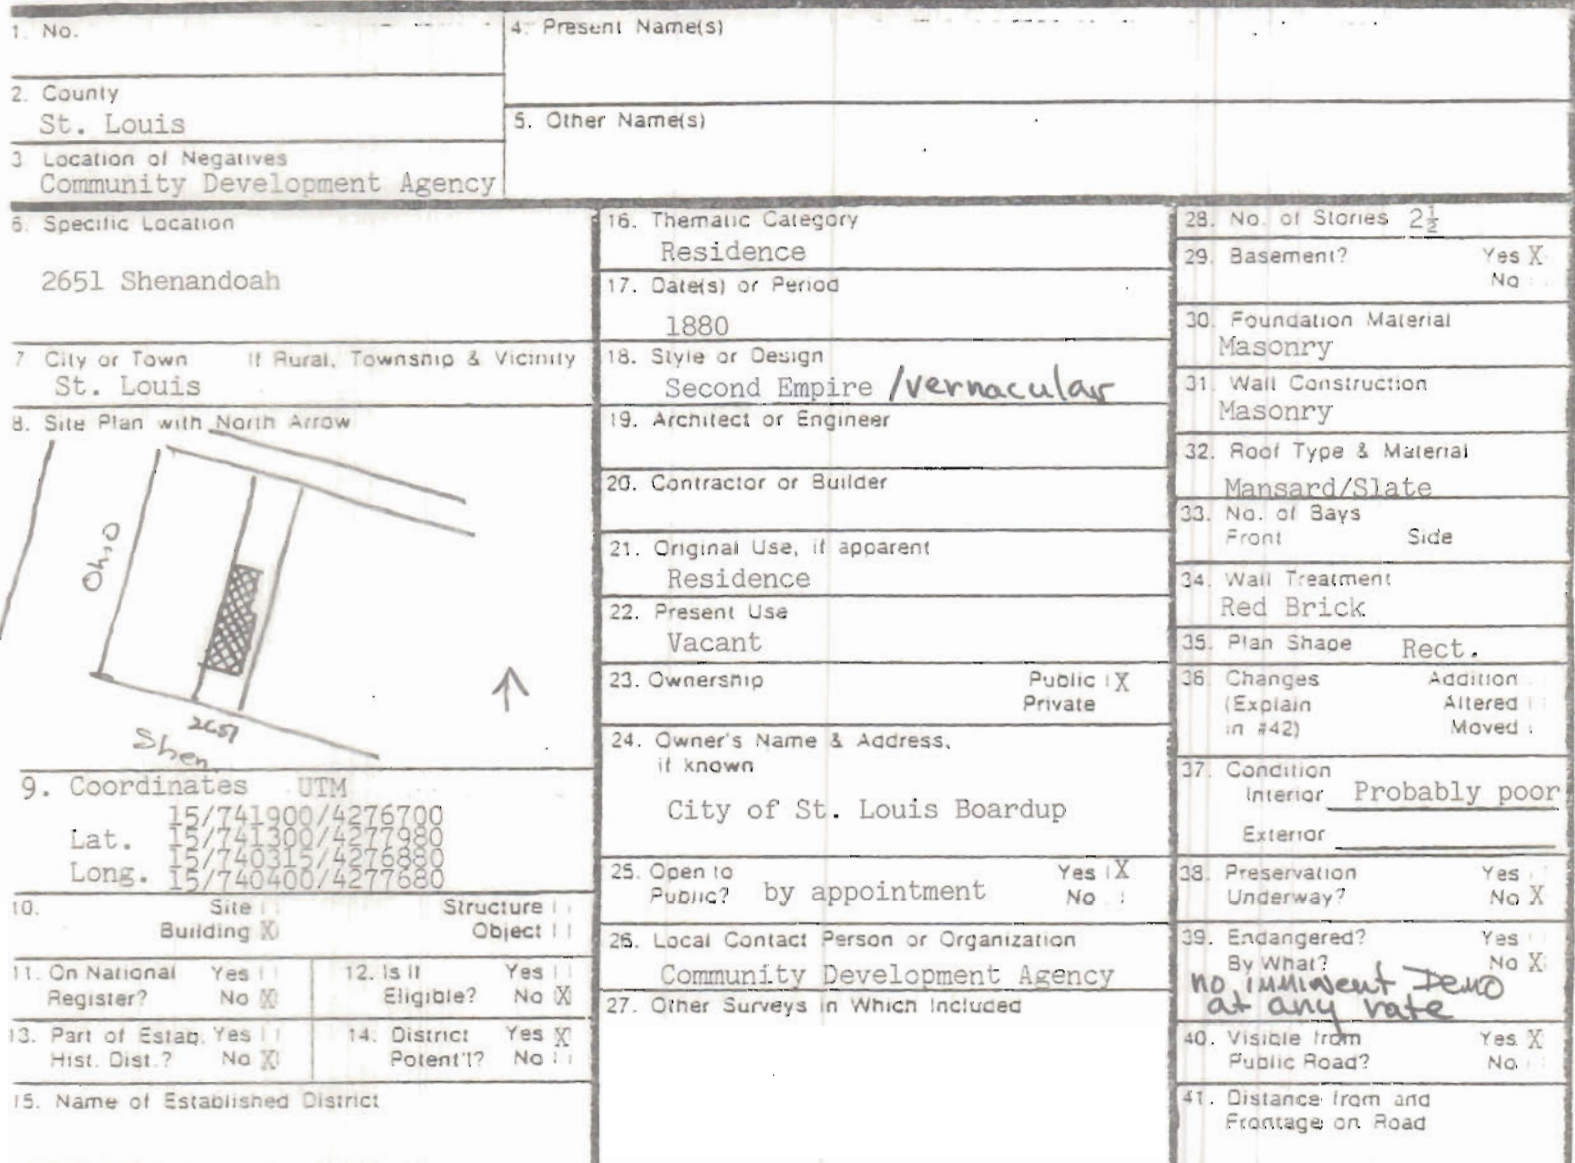 1. No.
2. County
St. Louis
3 Location of Negatives
Community Development Agency
4. Present Name(s)
5. Other Name(s)
6. Specific Location
2651 Shenandoah
7 City or Town If Rural, Township & Vicinity
St. Louis
8. Site Plan with North Arrow
Ohio
2651
Shen
9. Coordinates UTM
15/741900/4276700
Lat. 15/741300/4277980
15/740315/4276880
Long. 15/740400/4277680
10. Site Structure
Building X Object
11. On National Yes
Register? No X
12. Is It Yes
Eligible? No X
13. Part of Estab. Yes
Hist. Dist.? No X
14. District Yes X
Potent'l? No
15. Name of Established District
16. Thematic Category
Residence
17. Date(s) or Period
1880
18. Style or Design
Second Empire /vernacular
19. Architect or Engineer
20. Contractor or Builder
21. Original Use, if apparent
Residence
22. Present Use
Vacant
23. Ownership Public X
Private
24. Owner's Name & Address,
if known
City of St. Louis Boardup
25. Open to Yes X
Public? by appointment No
26. Local Contact Person or Organization
Community Development Agency
27. Other Surveys in Which Included
28. No. of Stories 2½
29. Basement? Yes X
No
30. Foundation Material
Masonry
31. Wall Construction
Masonry
32. Roof Type & Material
Mansard/Slate
33. No. of Bays
Front Side
34. Wall Treatment
Red Brick
35. Plan Shape Rect.
36. Changes Addition
(Explain Altered
in #42) Moved
37. Condition
Interior Probably poor
Exterior
38. Preservation Yes
Underway? No X
39. Endangered? Yes
By What? No X
no imminent Demo
at any rate
40. Visible from Yes X
Public Road? No
41. Distance from and
Frontage on Road